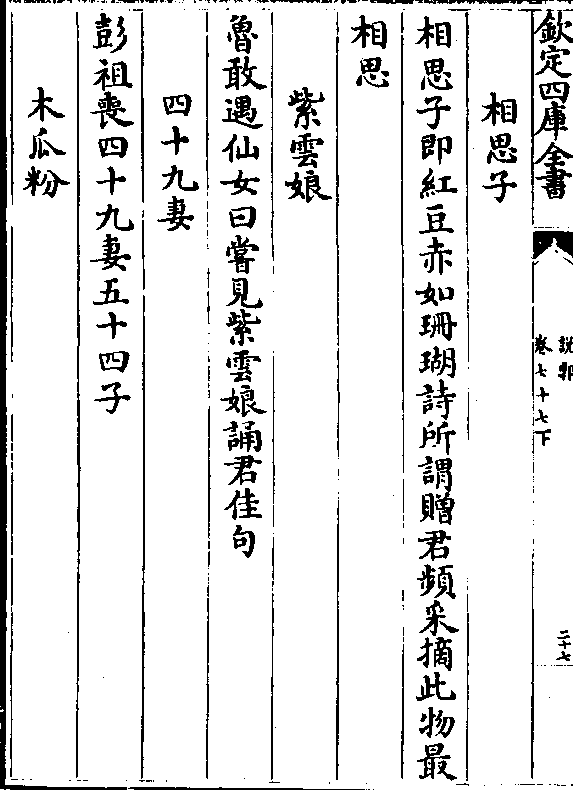 欽定四庫全書
說郛
卷七十七下
二十七
相思子
相思子即紅豆赤如珊瑚詩所謂贈君頻采摘此物最
相思
紫雲娘
魯敢遇仙女曰嘗見紫雲娘誦君佳句
四十九妻
彭祖喪四十九妻五十四子
木瓜粉